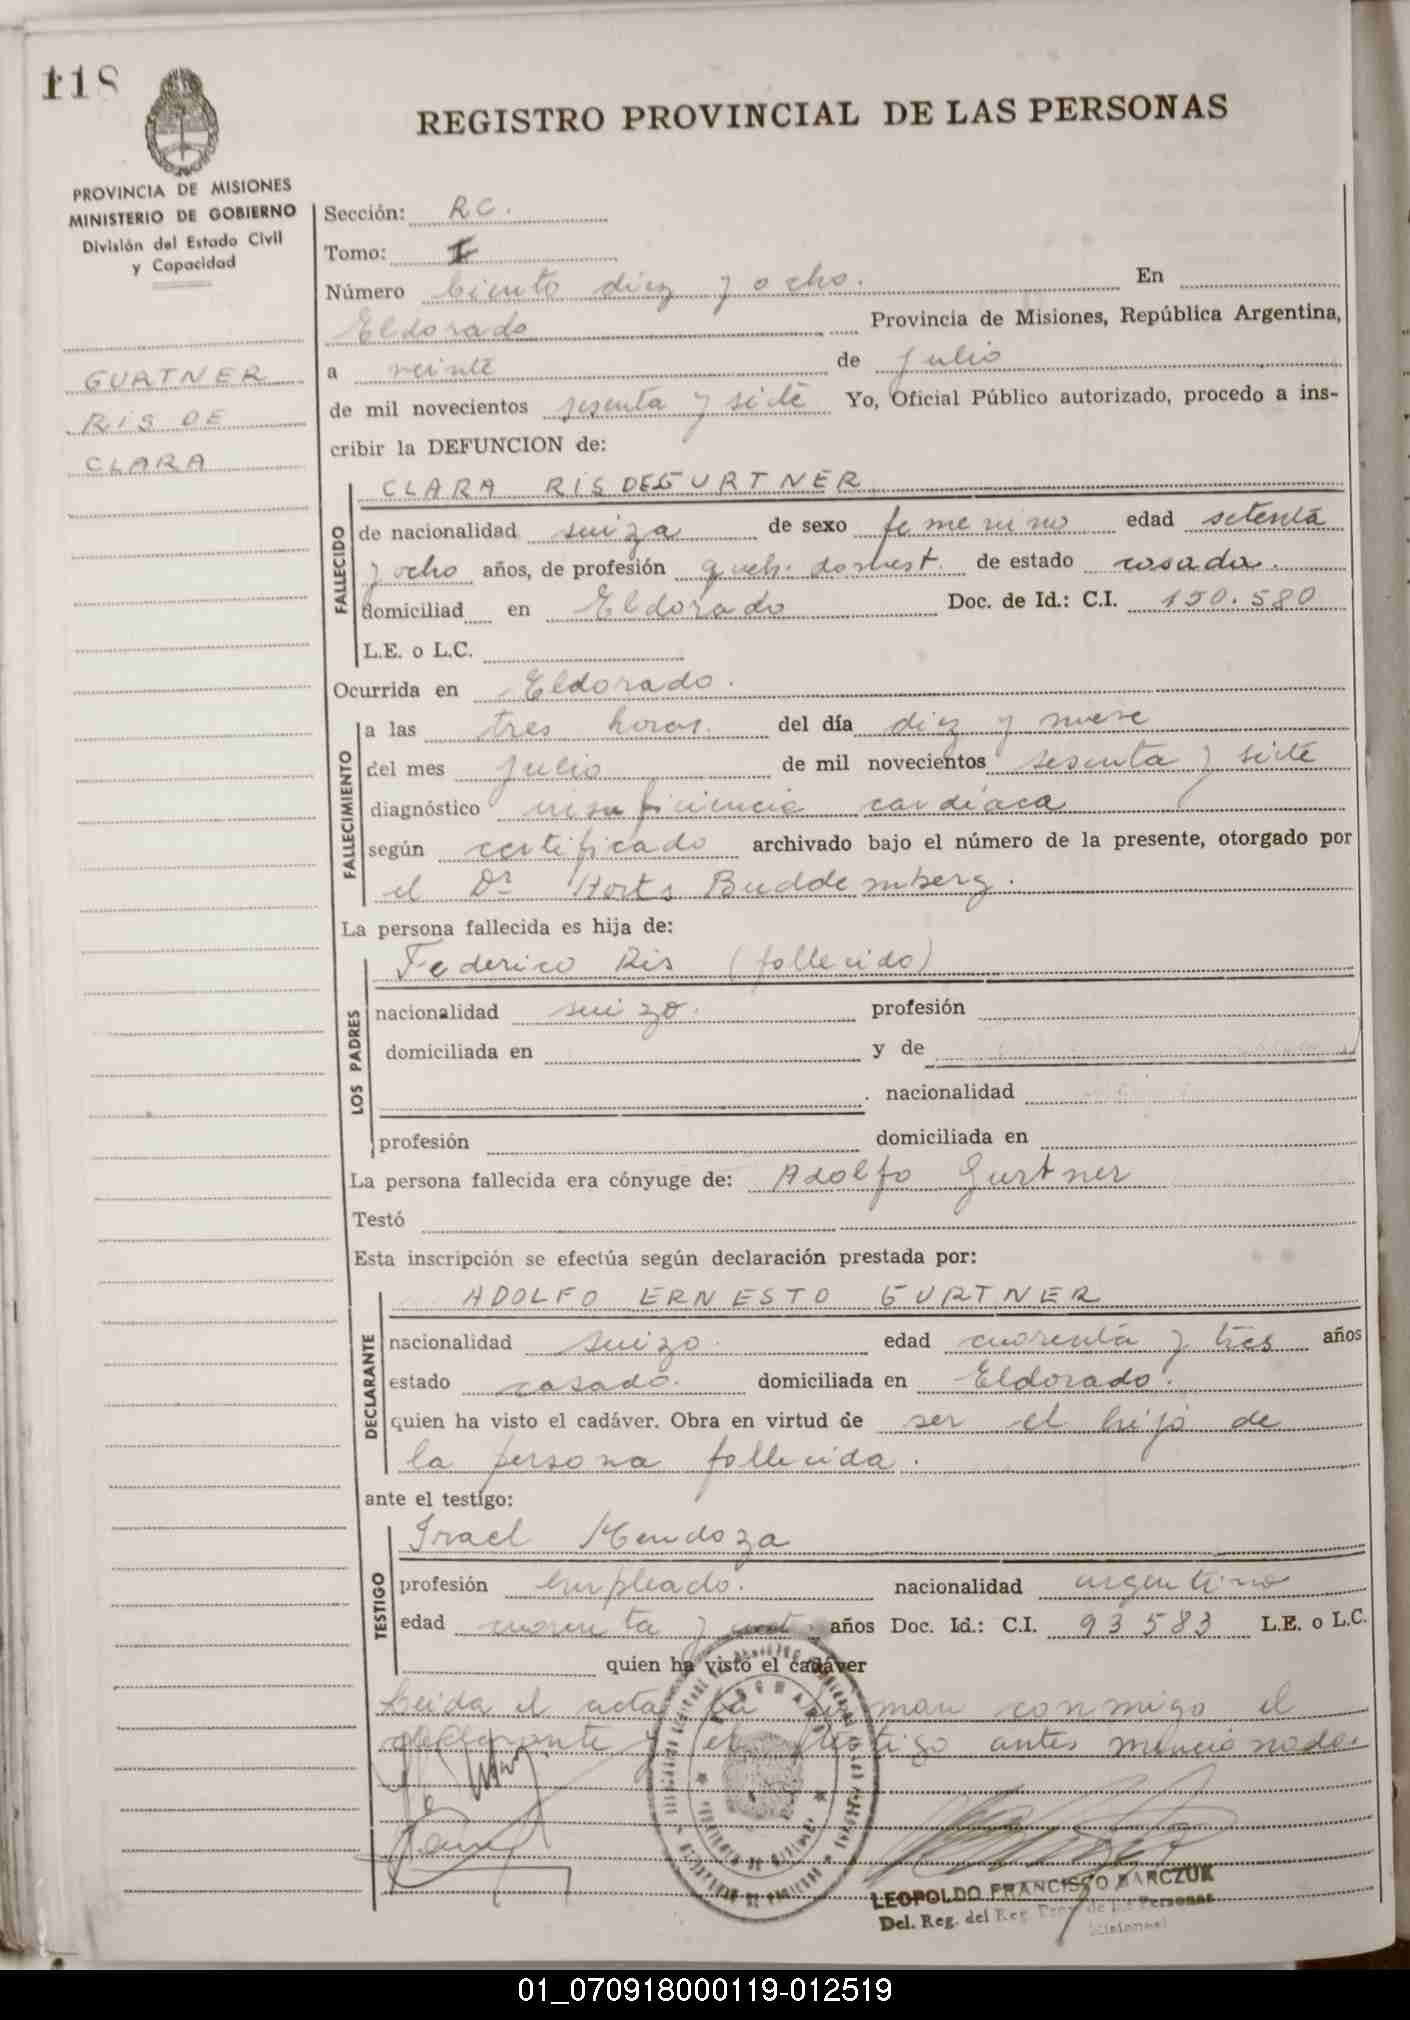 118
REGISTRO PROVINCIAL DE LAS PERSONAS
PROVINCIA DE MISIONES
MINISTERIO DE GOBIERNO
División del Estado Civil
y Capacidad
GURTNER
RIS DE
CLARA
Sección: RC.
Tomo: I
Número Ciento diez y ocho. En
Eldorado Provincia de Misiones, República Argentina,
a veinte de julio
de mil novecientos sesenta y siete Yo, Oficial Público autorizado, procedo a ins-
cribir la DEFUNCION de:
FALLECIDO
CLARA RIS DE GURTNER
de nacionalidad suiza de sexo femenino edad setenta
y ocho años, de profesión queh. domest. de estado casada.
domiciliad en Eldorado Doc. de Id.: C.I. 150.580
L.E. o L.C.
Ocurrida en Eldorado.
FALLECIMIENTO
a las tres horas. del día diez y nueve
del mes julio de mil novecientos sesenta y siete
diagnóstico insuficiencia cardíaca
según certificado archivado bajo el número de la presente, otorgado por
el Dr Horts Buddemberg.
La persona fallecida es hija de:
LOS PADRES
Federico Ris (fallecido)
nacionalidad suizo. profesión
domiciliada en y de
nacionalidad
profesión domiciliada en
La persona fallecida era cónyuge de: Adolfo Gurtner
Testó
Esta inscripción se efectúa según declaración prestada por:
DECLARANTE
ADOLFO ERNESTO GURTNER
nacionalidad suizo. edad cuarenta y tres años
estado casado. domiciliada en Eldorado.
quien ha visto el cadáver. Obra en virtud de ser el hijo de
la persona fallecida.
ante el testigo:
TESTIGO
Irael Mendoza
profesión empleado. nacionalidad argentino
edad cuarenta y años Doc. Id.: C.I. 93583 L.E. o L.C.
quien ha visto el cadáver
Leida el acta la firman conmigo el
declarante y el testigo antes mencionado.
LEOPOLDO FRANCISCO BARCZUK
Del. Reg. del Reg. Prov. de las Personas
Misiones
01_070918000119-012519